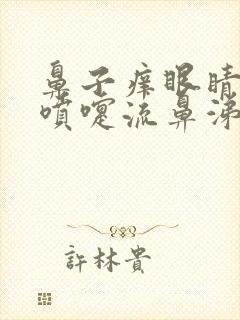 鼻子痒眼睛
喷嚏流鼻涕
許林貴